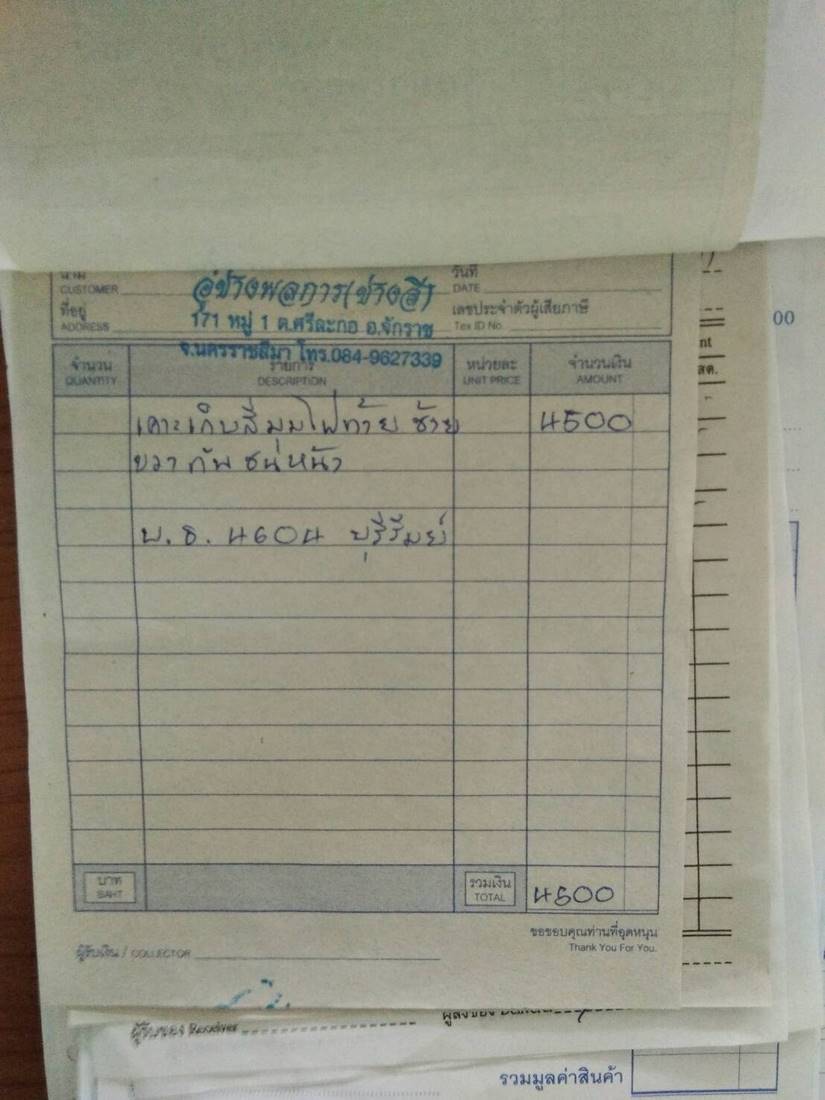 นาม
CUSTOMER
อู่ช่างพลการ(ช่างลี)
วันที่
DATE
ที่อยู่
ADDRESS
171 หมู่ 1 ต.ศรีละกอ อ.จักราช
เลขประจำตัวผู้เสียภาษี
Tex ID No.
จ.นครราชสีมา โทร.084-9627339
จำนวน
QUANTITY
รายการ
DESCRIPTION
หน่วยละ
UNIT PRICE
จำนวนเงิน
AMOUNT
เคาะเก็บสีมุมไฟท้าย ซ้าย 4500
ขวา กันชนหน้า
บ.ธ. 4604 บุรีรัมย์
บาท
BAHT
รวมเงิน
TOTAL
4500
ขอขอบคุณท่านที่อุดหนุน
Thank You For You.
ผู้รับเงิน / COLLECTOR
ผู้รับของ Receiver
ผู้ส่งของ
รวมมูลค่าสินค้า
00
nt
สต.